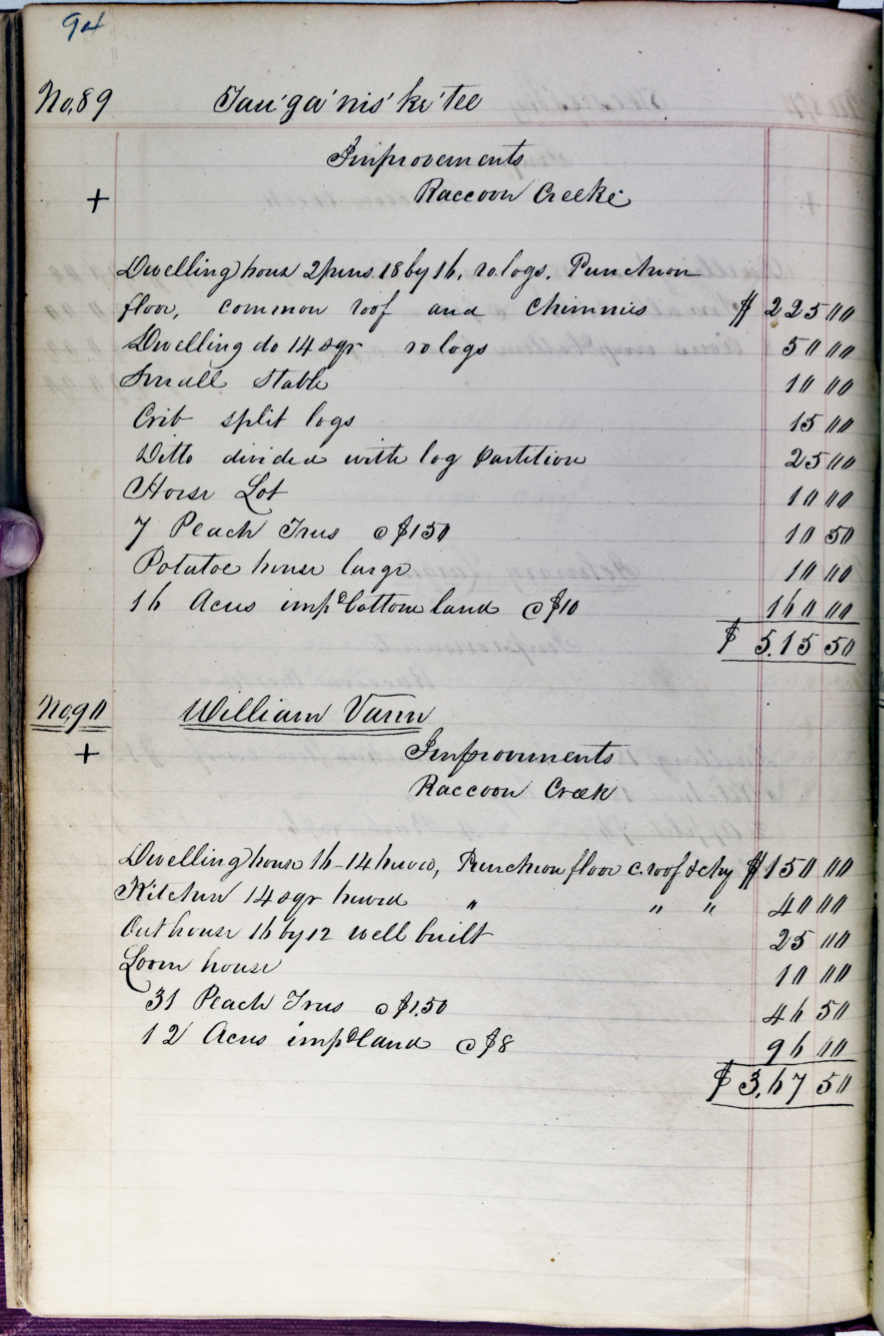 94
No, 89 Tau'ga'nis'ke'tee
Improvements
+ Raccoon Creeke
Dwelling hous 2 pens. 18 by 16, ro. logs. Puncheon
floor, common roof and Chimnies $ 225 00
Dwelling do 14 sqr ro logs 50 00
Small Stable 10 00
Crib split logs 15 00
Ditto divided with log Partition 25 00
Horse Lot 10 00
7 Peach Trees @ $1 50 10 50
Potatoe house large 10 00
16 Acres impd bottom land @ $10 160 00
$ 5.15 50
No, 90 William Vann
+ Improvements
Raccoon Creek
Dwelling house 16 - 14 hewed, Puncheon floor c. roof & chy $ 150 00
Kitchen 14 sqr hewed " " " 40 00
Out house 16 by 12 well built 25 00
Loom house 10 00
31 Peach Trees @ $1.50 46 50
12 Acres impd land @ $8 96 00
$ 3.67 50